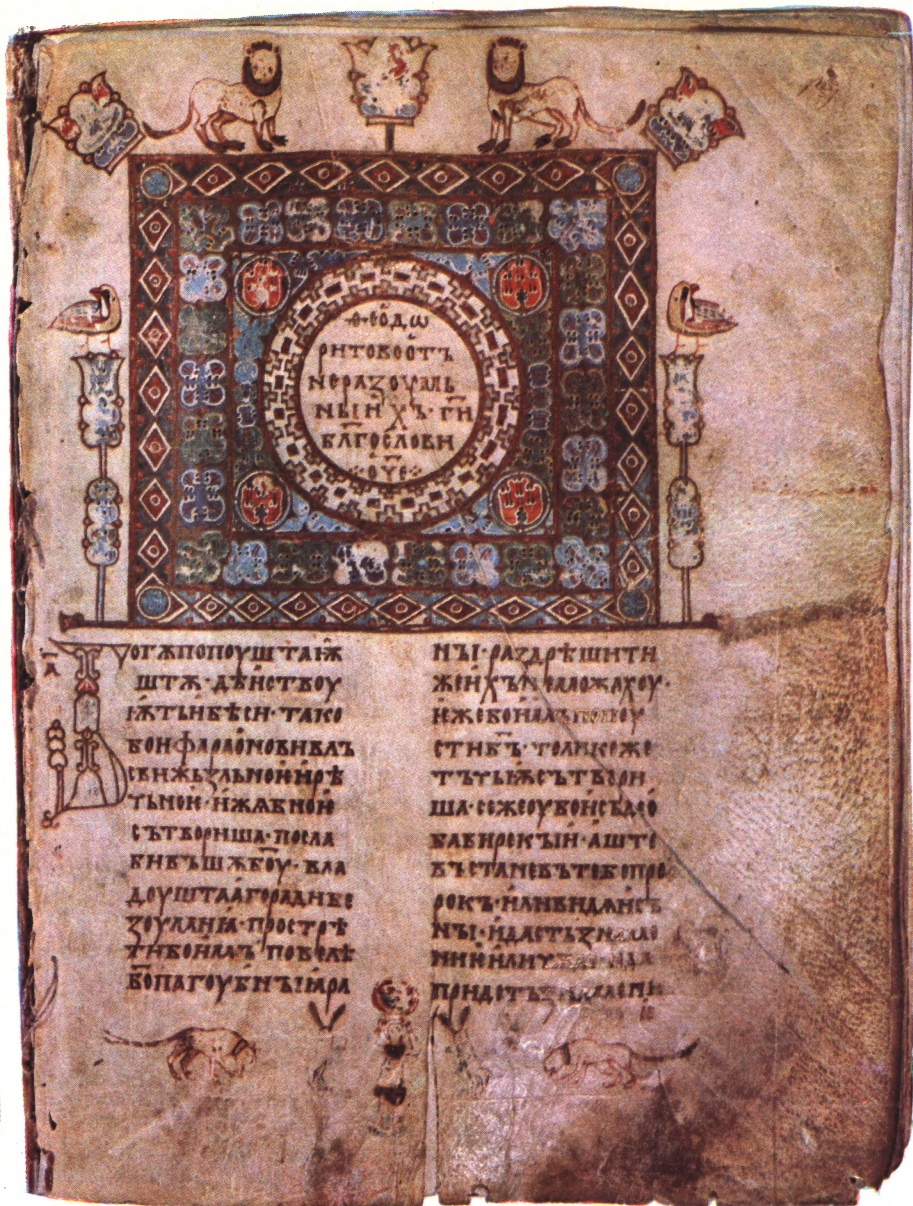 ·ѳ·еодѡ
ритовоотъ
неразоумль
ныихъ·г҃и
бл҃гослови
·оч҃е·
а҃
богѫпопоуштаѭ
штѫ·дѣиствоу
ѭтьибѣси·тако
боифараоновивлъ
свижьзльмоиирѣ
тьмои·ижѧбмои
сътвориша·посла
бивъшѫб҃оу·вла
доуштаагорадибе
зоумлания·прострѣ
тибонамъповелѣ
б҃опагоубныимра
ны·раздрѣшити
женхъ
ижебонамъ
стиб҃ъ·толикоже
сътвори
ша·сежеоубоисъдео
вавирекъи·аште
въстаневътебепро
рокъ·иливидѧисъ
ны·идастьзнаме
ние
придетъзнамение